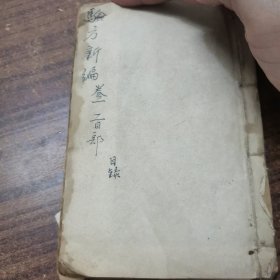 驗方新編卷一二百部
目錄